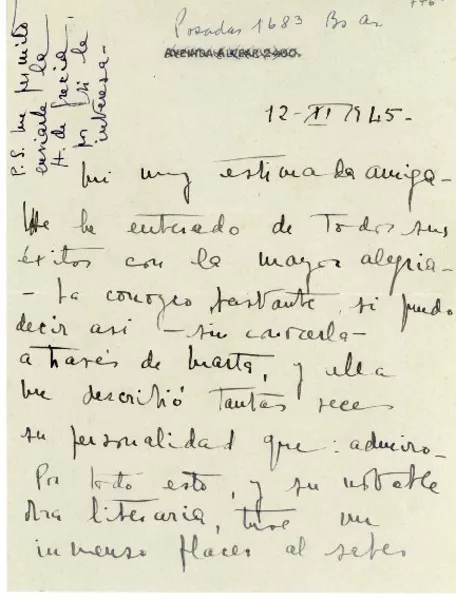 Posadas 1683 Bs as
AVENIDA ALVEAR 2480.
12-XI 1945-
Mi muy estimada amiga-
Me he enterado de Todos sus
éxitos con la mayor alegria-
- La conozco bastante, si puedo
decir asi - sin conocerla -
a través de Marta, y ella
me describió Tantas veces
su personalidad que: admiro-
Por todo esto, y su notable
obra literaria, tuve un
inmenso placer al saber
P.S. me permito
enviarle la
H. de Grecia
por si le
interesa-